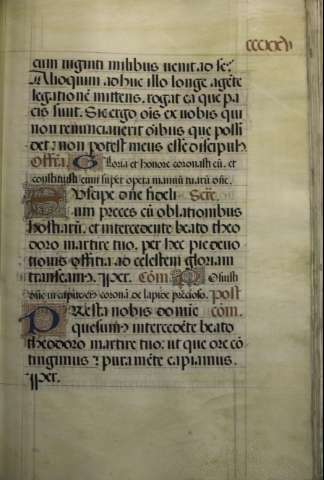 ccccxv
cum uiginti milibus uenit ad se?
Alioquin adhuc illo longe agēte
legationē mittens, rogat ea que pa
cis sunt. Sic ergo oīs ex uobis qui
non renunciauerit oībus que possi
det: non potest meus esse discipulꝰ
Offeā. Gloria et honore coronasti eū. et
constituisti eum super opera manuū tuarū dn̄e.
Suscipe dn̄e fideli Secr̄e.
um preces cū oblationibus
hostiarū. et intercedente beato theo
doro martire tuo, per hec pie deuo
tionis officia ad celestem gloriam
transeamꝰ. per. Com̄. Posuisti
dn̄e in capite eiꝰ coronā de lapide precioso. post
Presta nobis domine com̄.
quesumꝰ intercedēte beato
theodoro martire tuo: ut que ore cō
tingimus: pura mēte capiamus.
per.